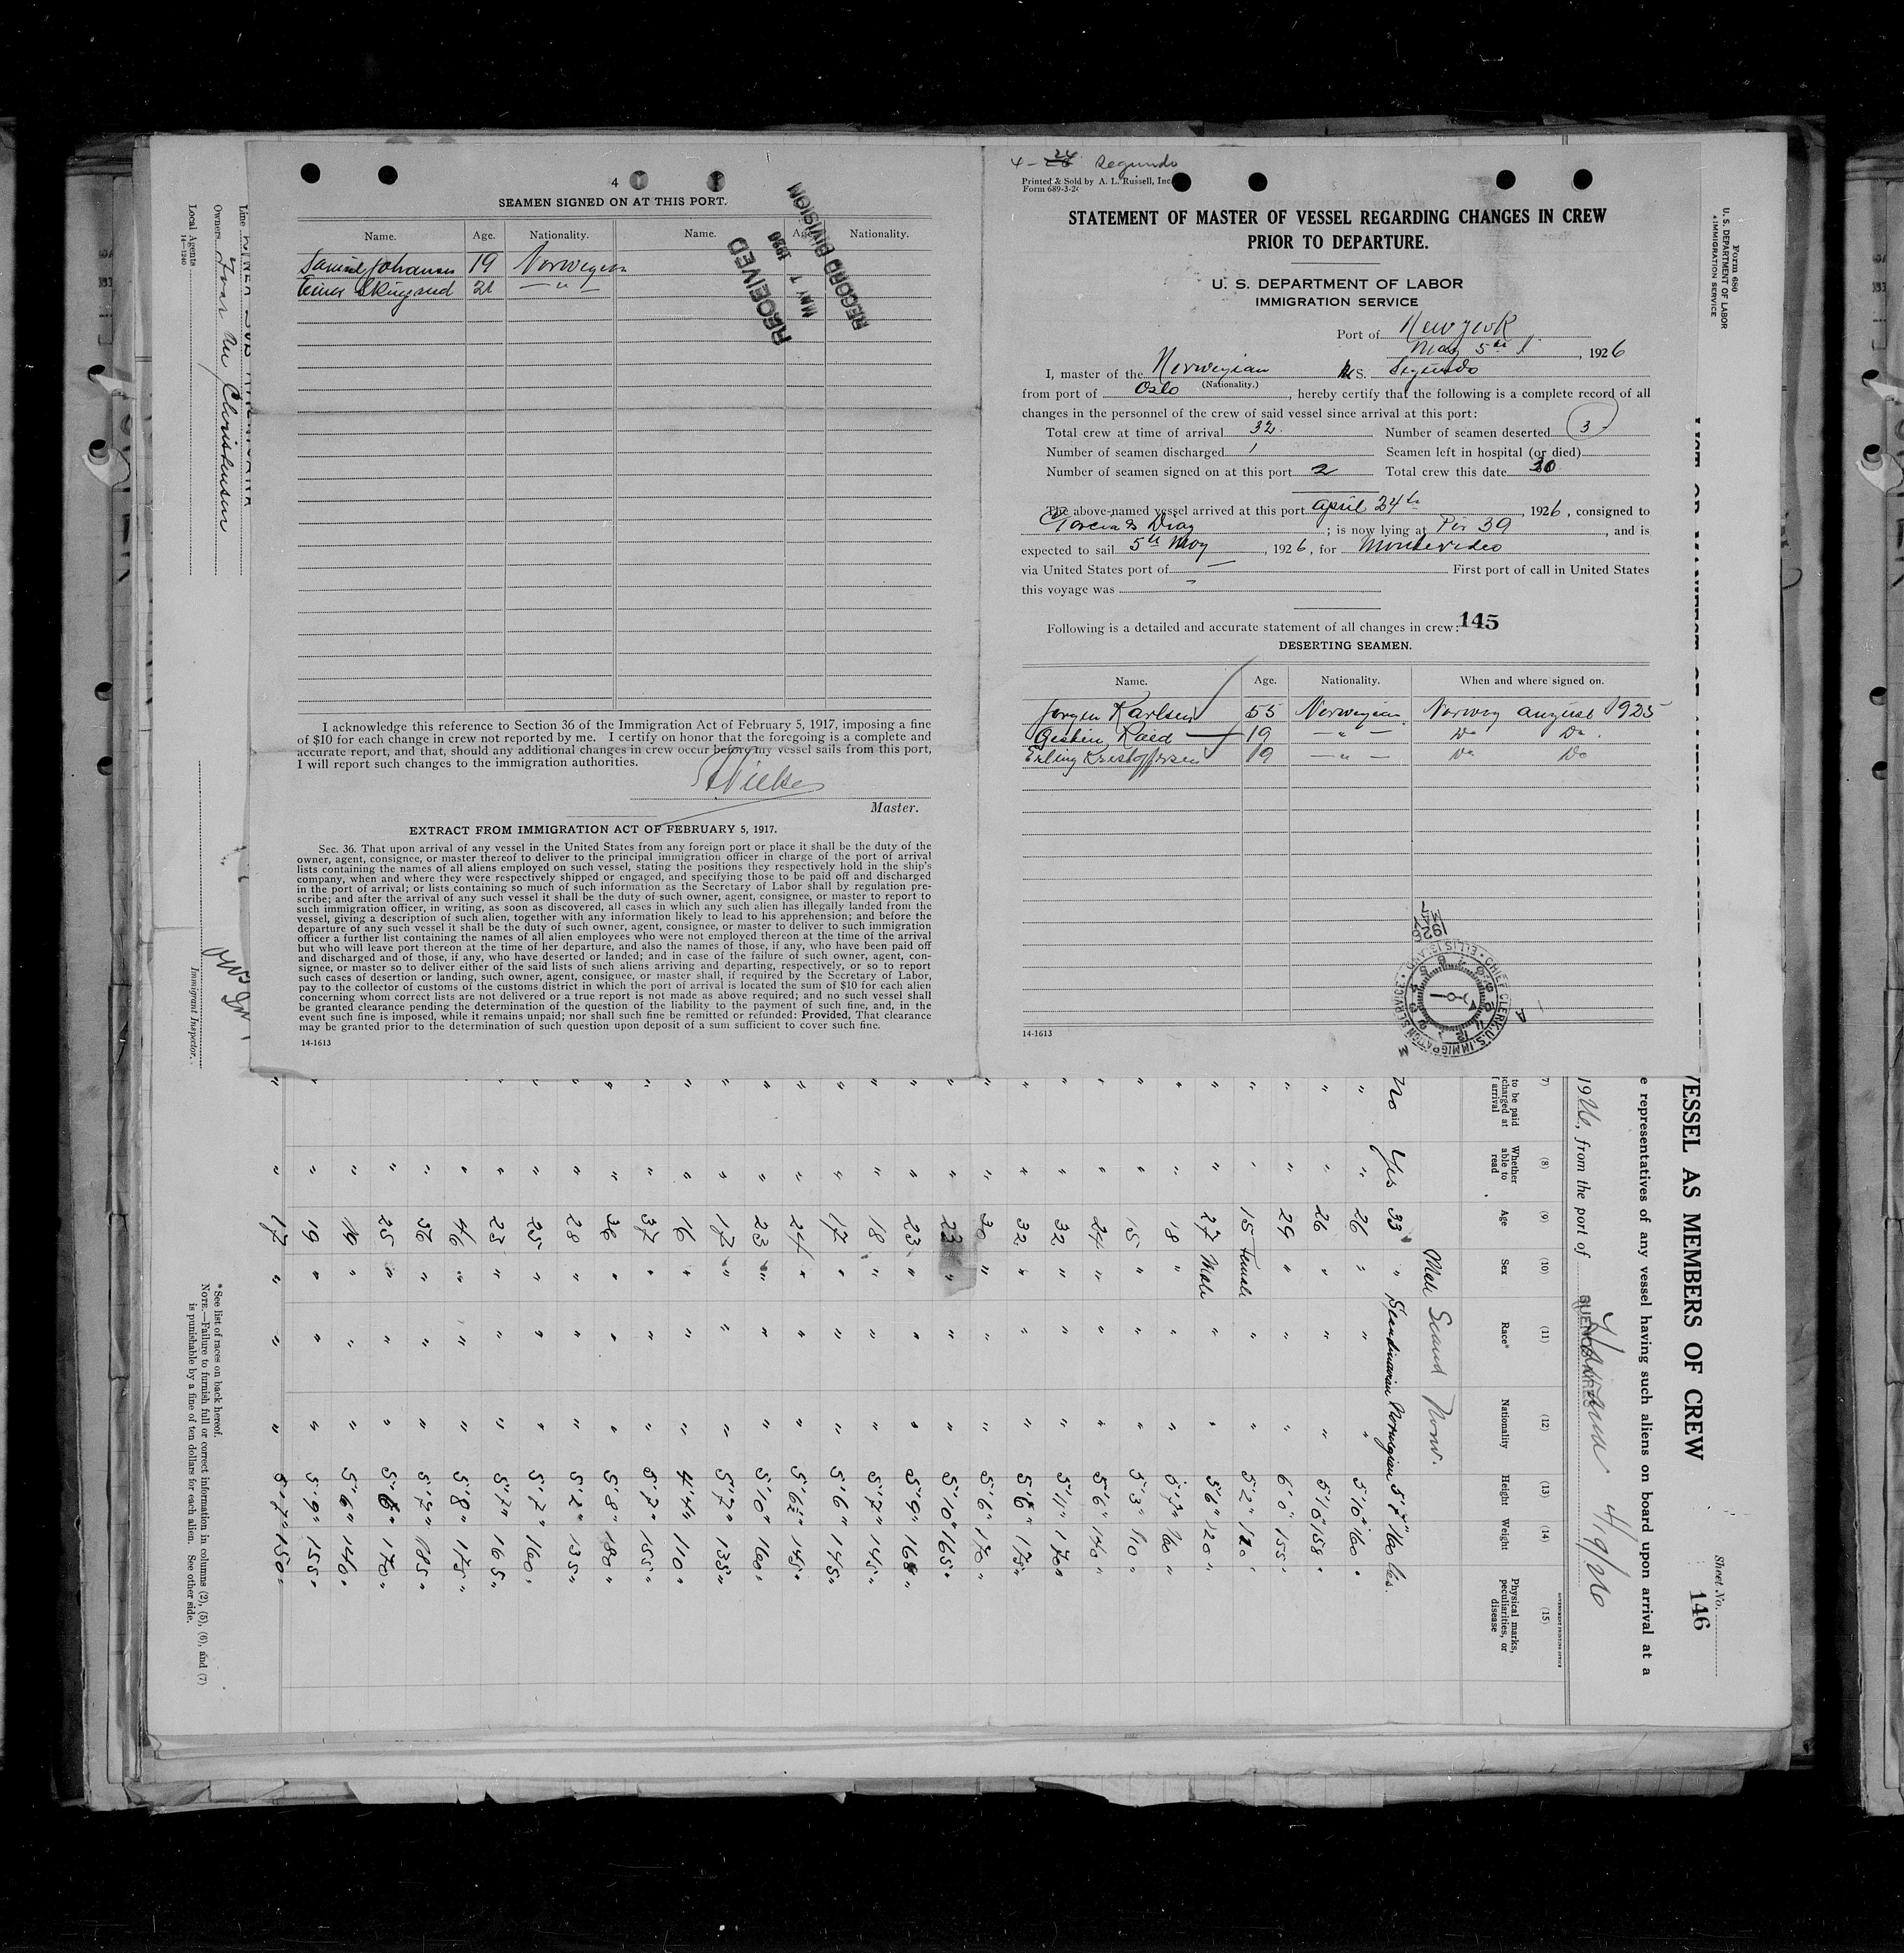 4
SEAMEN SIGNED ON AT THIS PORT.
Name. Age. Nationality. Name. Age. Nationality.
Johansen 19 Norwegian
21 — " —
RECEIVED
MAY 7 1926
RECORD DIVISION
I acknowledge this reference to Section 36 of the Immigration Act of February 5, 1917, imposing a fine
of $10 for each change in crew not reported by me. I certify on honor that the foregoing is a complete and
accurate report, and that, should any additional changes in crew occur before my vessel sails from this port,
I will report such changes to the immigration authorities.
Master.
EXTRACT FROM IMMIGRATION ACT OF FEBRUARY 5, 1917.
Sec. 36. That upon arrival of any vessel in the United States from any foreign port or place it shall be the duty of the
owner, agent, consignee, or master thereof to deliver to the principal immigration officer in charge of the port of arrival
lists containing the names of all aliens employed on such vessel, stating the positions they respectively hold in the ship's
company, when and where they were respectively shipped or engaged, and specifying those to be paid off and discharged
in the port of arrival; or lists containing so much of such information as the Secretary of Labor shall by regulation pre-
scribe; and after the arrival of any such vessel it shall be the duty of such owner, agent, consignee, or master to report to
such immigration officer, in writing, as soon as discovered, all cases in which any such alien has illegally landed from the
vessel, giving a description of such alien, together with any information likely to lead to his apprehension; and before the
departure of any such vessel it shall be the duty of such owner, agent, consignee, or master to deliver to such immigration
officer a further list containing the names of all alien employees who were not employed thereon at the time of the arrival
but who will leave port thereon at the time of her departure, and also the names of those, if any, who have been paid off
and discharged and of those, if any, who have deserted or landed; and in case of the failure of such owner, agent, con-
signee, or master so to deliver either of the said lists of such aliens arriving and departing, respectively, or so to report
such cases of desertion or landing, such owner, agent, consignee, or master shall, if required by the Secretary of Labor,
pay to the collector of customs of the customs district in which the port of arrival is located the sum of $10 for each alien
concerning whom correct lists are not delivered or a true report is not made as above required; and no such vessel shall
be granted clearance pending the determination of the question of the liability to the payment of such fine, and, in the
event such fine is imposed, while it remains unpaid; nor shall such fine be remitted or refunded: Provided, That clearance
may be granted prior to the determination of such question upon deposit of a sum sufficient to cover such fine.
14-1613
4-24 Segundo
Printed & Sold by A. L. Russell, Inc.
Form 689-3-26
STATEMENT OF MASTER OF VESSEL REGARDING CHANGES IN CREW
PRIOR TO DEPARTURE.
U. S. DEPARTMENT OF LABOR
IMMIGRATION SERVICE
Port of New York
May 5th, 1926
I, master of the Norwegian M S. Segundo
(Nationality.)
from port of Oslo, hereby certify that the following is a complete record of all
changes in the personnel of the crew of said vessel since arrival at this port:
Total crew at time of arrival 32. Number of seamen deserted 3
Number of seamen discharged 1 Seamen left in hospital (or died)
Number of seamen signed on at this port 2 Total crew this date 30
The above-named vessel arrived at this port April 24th, 1926, consigned to
Garcia & Diaz; is now lying at Pir 39, and is
expected to sail 5th May, 1926, for Montevideo
via United States port of — First port of call in United States
this voyage was —
Following is a detailed and accurate statement of all changes in crew: 145
DESERTING SEAMEN.
Name. Age. Nationality. When and where signed on.
Jorgen Karlsen 55 Norwegian Norway August 1925
19 — " — Do Do.
Erling Kristoffersen 19 — " — Do Do
CHIEF CLERK, U.S. IMMIGRATION SERVICE, ELLIS ISLAND
14-1613
Form 680
U. S. DEPARTMENT OF LABOR
IMMIGRATION SERVICE
Sheet No.
146
VESSEL AS MEMBERS OF CREW
e representatives of any vessel having such aliens on board upon arrival at a
1926, from the port of Havana 4/19/26
BUENOS AIRES
(7) (8) (9) (10) (11) (12) (13) (14) (15)
to be paid
charged at
arrival
Whether
able to
read
Age Sex Race* Nationality Height Weight
Physical marks,
peculiarities, or
disease
Male Scand Norw.
No Yes 33 " Scandinavian Norwegian 5'7" 160 lbs.
" " 26 " " " 5'10" 160 "
" " 26 " " " 5'10" 158 "
" " 29 " " " 6'0" 155 "
" " 15 Female " " 5'2" 120 "
" " 27 Male " " 5'6" 120 "
" " 18 " " " 5'7" 160 "
" " 15 " " " 5'3" 110 "
" " 24 " " " 5'6" 140 "
" " 32 " " " 5'11" 170 "
" " 32 " " " 5'6" 175 "
" " 30 " " " 5'6" 170 "
" " 23 " " " 5'10" 165 "
" " 23 " " " 5'9" 168 "
" " 18 " " " 5'7" 145 "
" " 17 " " " 5'6" 145 "
" " 24 " " " 5'6½" 145 "
" " 23 " " " 5'10" 160 "
" " 17 " " " 5'7" 135 "
" " 16 " " " 4'4" 110 "
" " 37 " " " 5'7" 155 "
" " 36 " " " 5'8" 180 "
" " 28 " " " 5'2" 135 "
" " 25 " " " 5'7" 160 "
" " 23 " " " 5'7" 165 "
" " 46 " " " 5'8" 175 "
" " 56 " " " 5'7" 185 "
" " 25 " " " 5'6" 170 "
" " 19 " " " 5'6" 140 "
" " 19 " " " 5'9" 155 "
" " 17 " " " 5'7" 150 "
Line
Owners Ivar An Christensen
Local Agents
14-1240
Immigrant Inspector.
* See list of races on back hereof.
NOTE.—Failure to furnish full or correct information in columns (2), (5), (6), and (7)
is punishable by a fine of ten dollars for each alien. See other side.